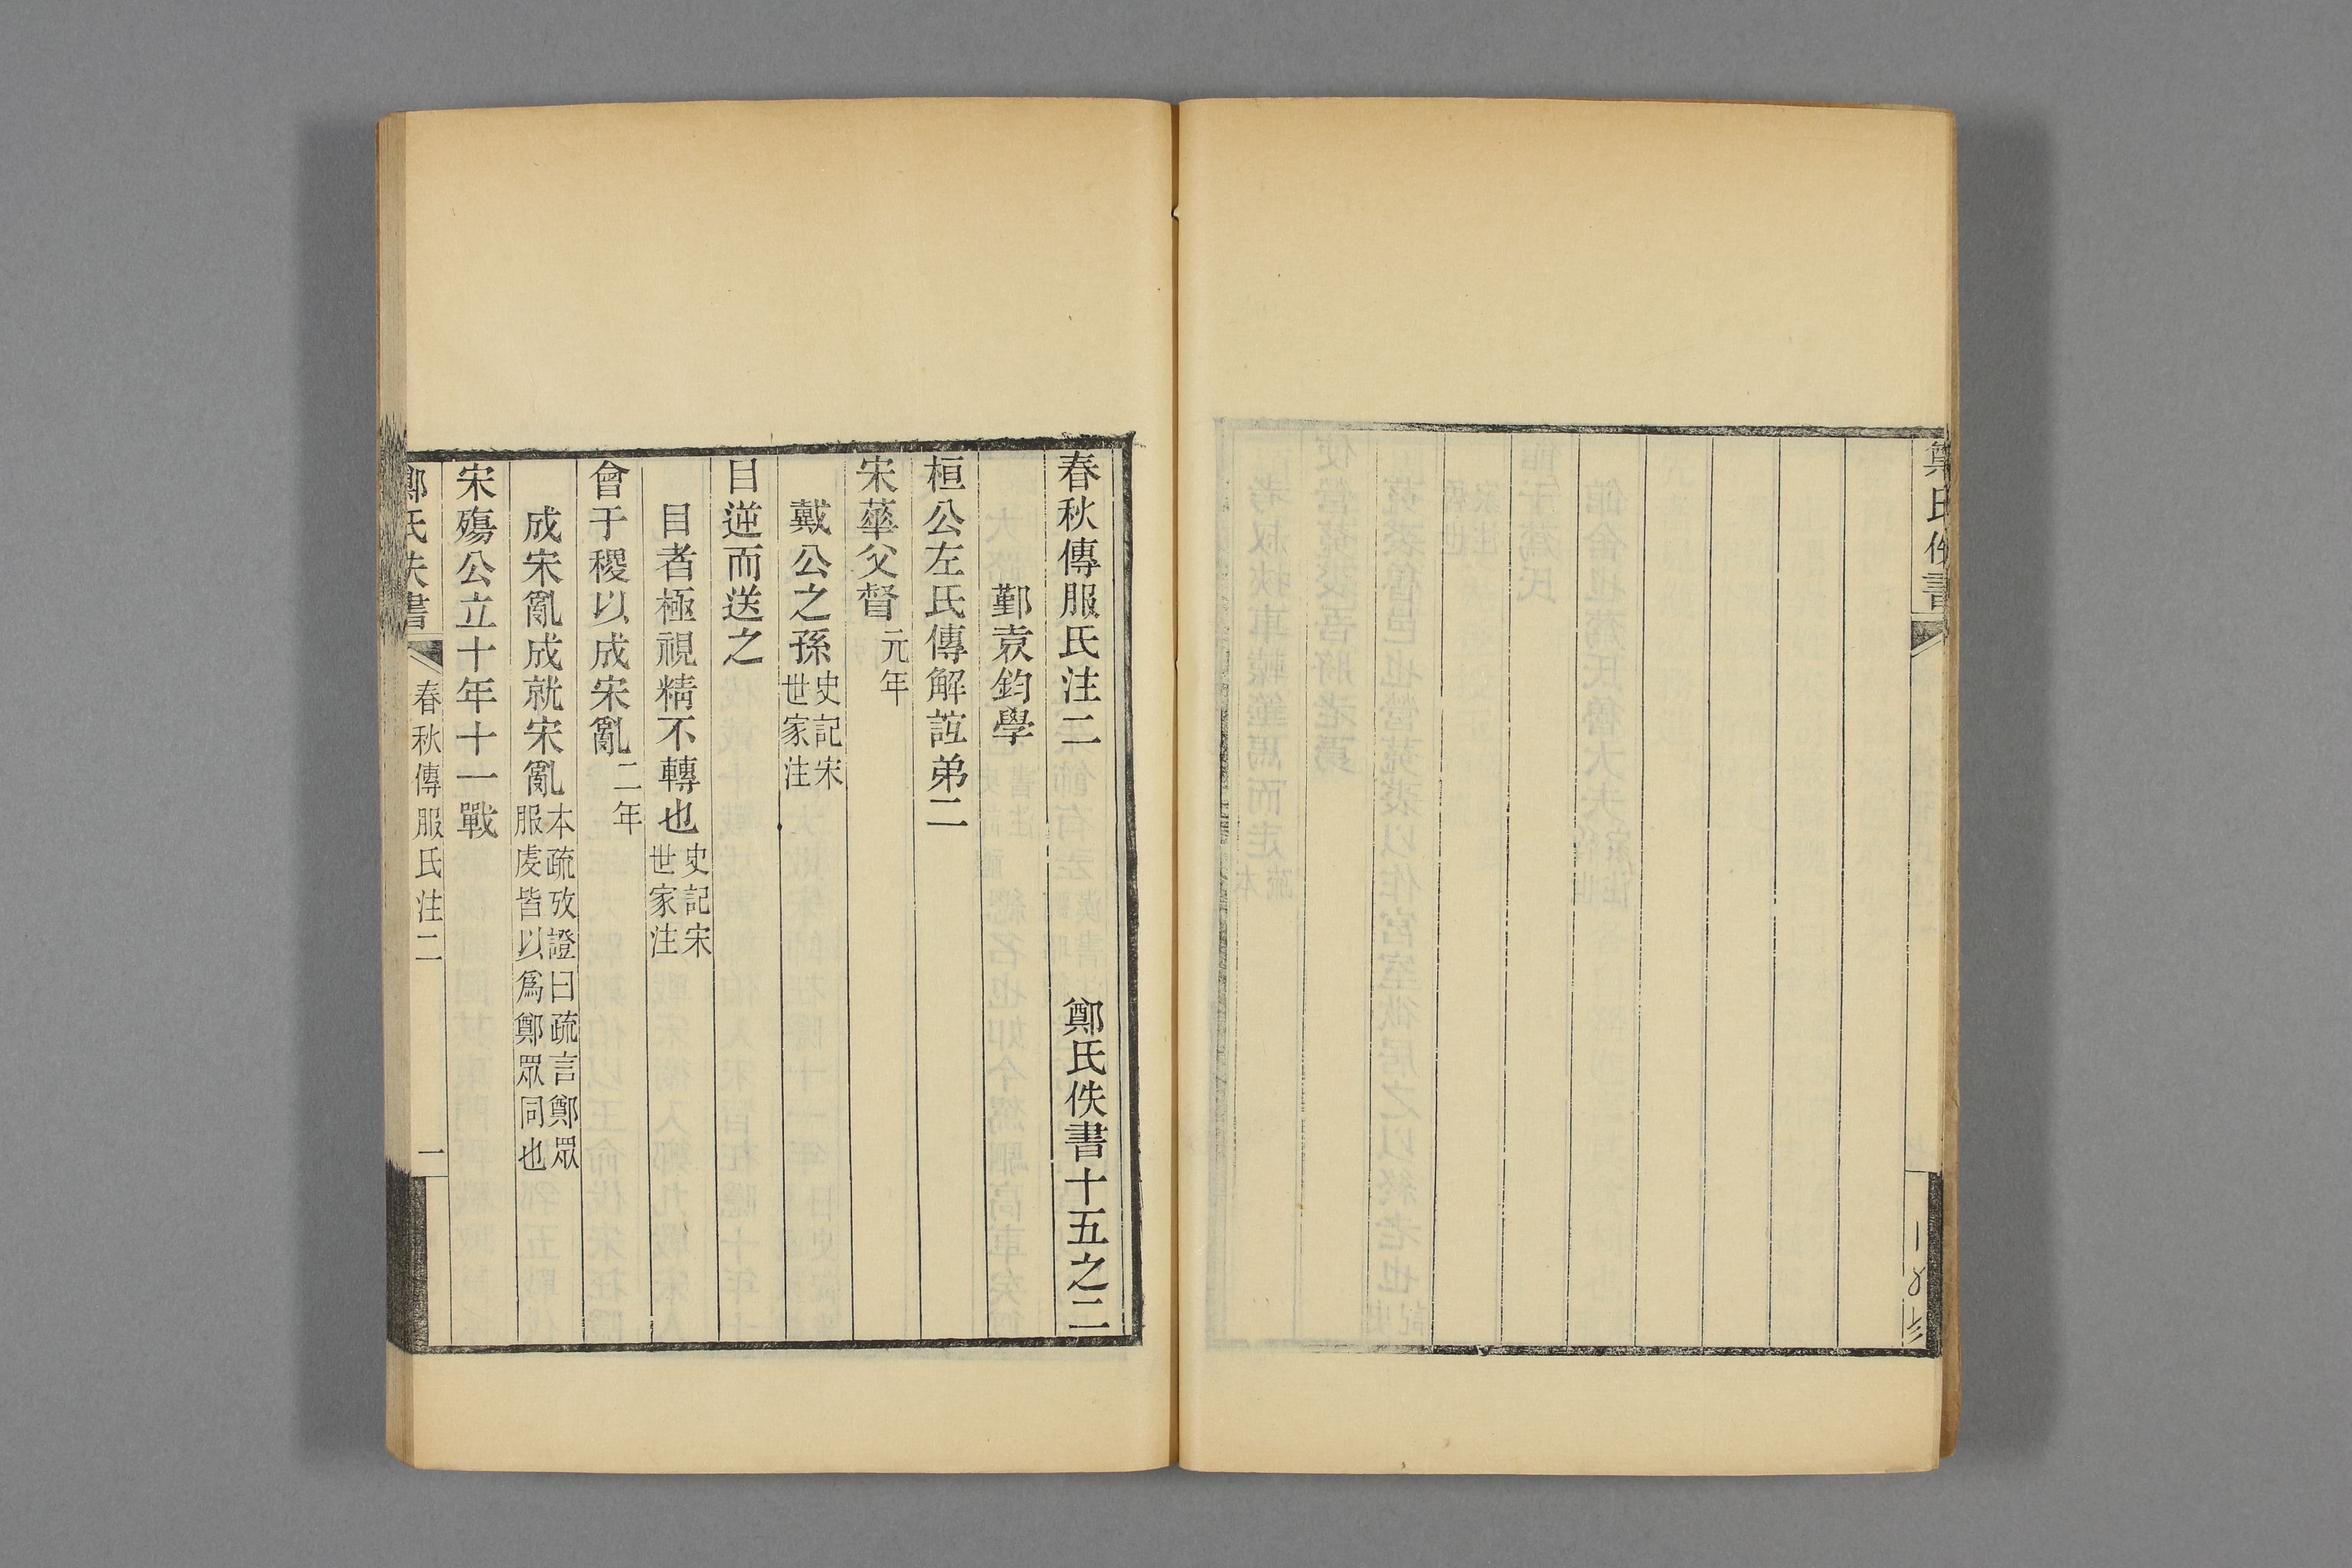 春秋傳服氏注二　鄭氏佚書十五之二
鄞袁鈞學
桓公左氏傳解誼弟二
宋華父督元年
戴公之孫史記宋世家注
目逆而送之
目者極視精不轉也史記宋世家注
會于稷以成宋亂二年
成宋亂成就宋亂本疏攷證曰疏言鄭眾服虔皆以爲鄭眾同也
宋殤公立十年十一戰
鄭氏佚書　春秋傳服氏注二　一
鄭氏佚書